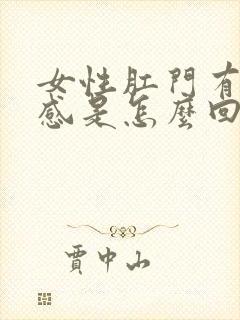 女性肛門有
感是怎麼回
賈中山